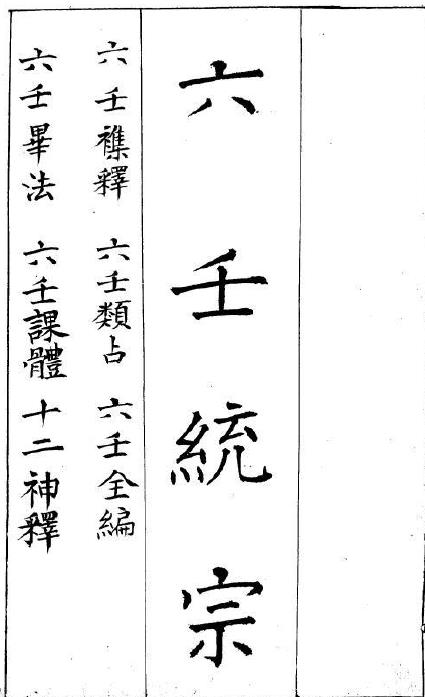 六壬統宗
六壬襍釋 六壬類占 六壬全編
六壬畢法 六壬課體 十二神釋